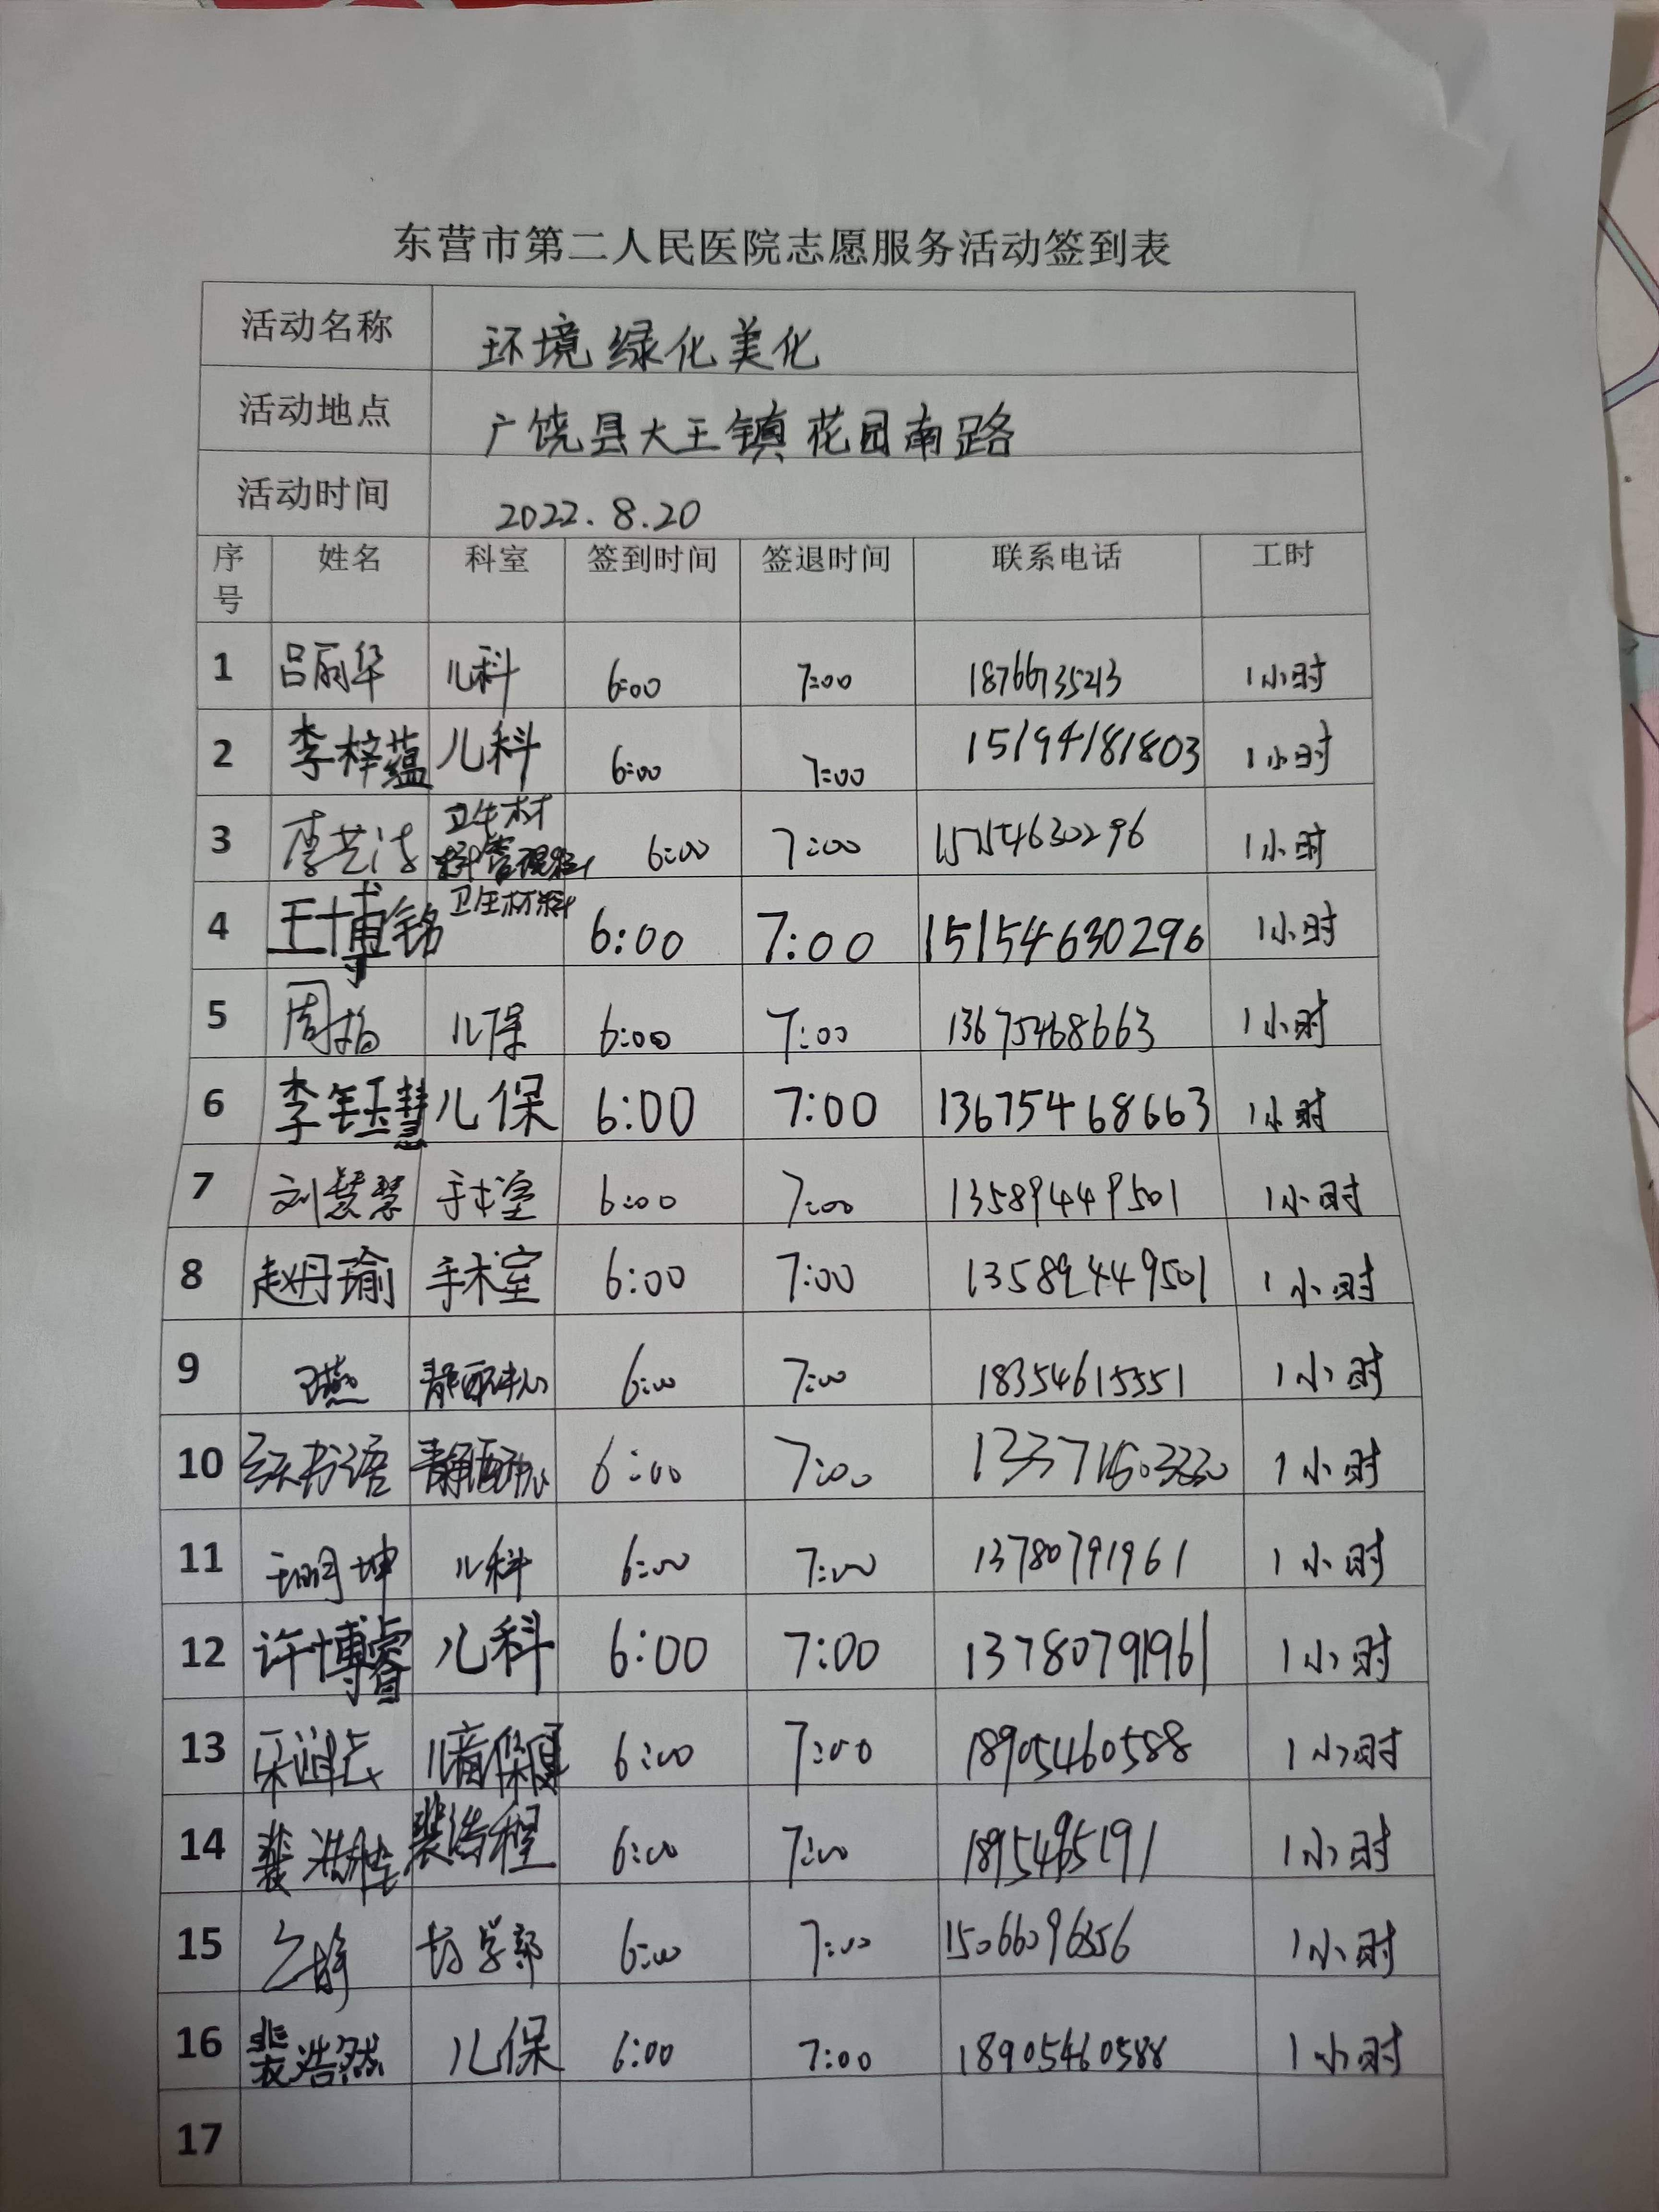 东营市第二人民医院志愿服务活动签到表
活动名称 环境绿化美化
活动地点 广饶县大王镇花园南路
活动时间 2022.8.20
序号 姓名 科室 签到时间 签退时间 联系电话 工时
1 吕丽华 儿科 6:00 7:00 18766735213 1小时
2 李梓蕴 儿科 6:00 7:00 15194181803 1小时
3 李艺洁 卫生材料管理科 6:00 7:00 15154630296 1小时
4 王博铭 卫生材料 6:00 7:00 15154630296 1小时
5 周梅 儿保 6:00 7:00 13675468663 1小时
6 李钰慧 儿保 6:00 7:00 13675468663 1小时
7 刘慧慧 手术室 6:00 7:00 13589449501 1小时
8 赵丹瑜 手术室 6:00 7:00 13589449501 1小时
9 王燕 静配中心 6:00 7:00 18354615551 1小时
10 书语 静配中心 6:00 7:00 1小时
11 坤 儿科 6:00 7:00 13780791961 1小时
12 许博睿 儿科 6:00 7:00 13780791961 1小时
13 儿童保健 6:00 7:00 18905460588 1小时
14 裴浩程 裴浩程 6:00 7:00 1小时
15 6:00 7:00 15066096356 1小时
16 裴浩然 儿保 6:00 7:00 18905460588 1小时
17